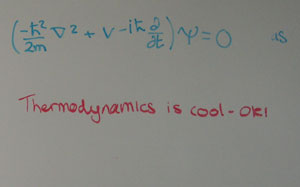 (-ħ²/2m ∇² + V - iħ ∂/∂t) Ψ = 0 is
Thermodynamics is cool - oki